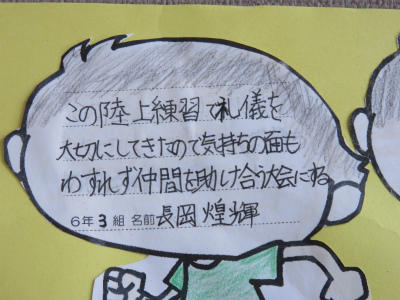 この陸上練習で礼儀を
大切にしてきたので気持ちの面も
わすれず仲間を助け合う大会にする
6年3組 名前 長岡煌輝